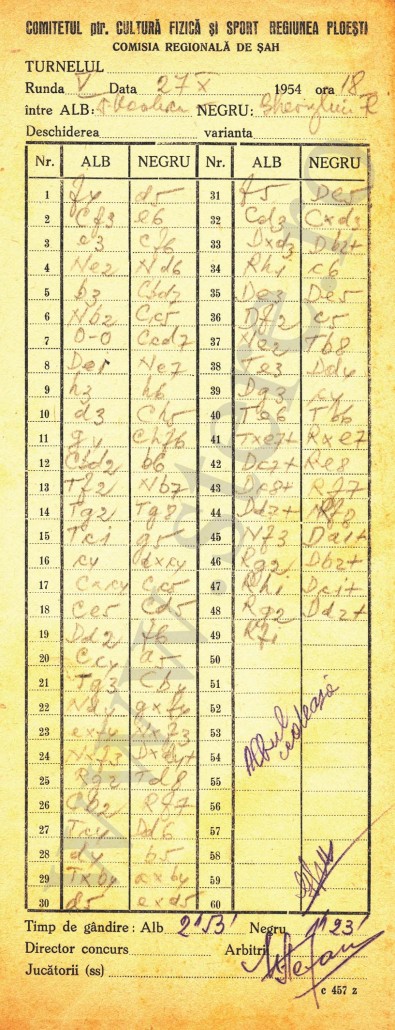 COMITETUL ptr. CULTURĂ FIZICĂ și SPORT REGIUNEA PLOEȘTI
COMISIA REGIONALĂ DE ȘAH
TURNELUL
Runda V Data 27 X 1954 ora 18
între ALB: NEGRU: Gheorghiu F
Deschiderea varianta
Nr. ALB NEGRU Nr. ALB NEGRU
1 f4 d5 31 f5 De5
2 Cf3 e6 32 Cd3 Cxd3
3 e3 Cf6 33 Dxd3 Db2+
4 Ne2 Nd6 34 Rh1 c6
5 b3 Cbd7 35 De3 De5
6 Nb2 Cc5 36 Df2 c5
7 0-0 Ccd7 37 Ne2 Tb8
8 De1 Ne7 38 Te3 Dd4
9 h3 h6 39 Dg3 c4
10 d3 Ch5 40 Te6 Tb6
11 g4 Chf6 41 Txe7+ Rxe7
12 Cbd2 b6 42 Dc7+ Re8
13 Tf2 Nb7 43 Dc8+ Rf7
14 Tg2 Tg8 44 Dd7+ Rf8
15 Tc1 g5 45 Nf3 Da1+
16 c4 dxc4 46 Rg2 Db2+
17 Cxc4 Cc5 47 Rh1 Dc1+
18 Ce5 Cd5 48 Rg2 Dd2+
19 Dd2 f6 49 Rf1
20 Cc4 a5 50
21 Tg3 Cb4 51
22 gxf4 52
23 exf4 53
24 Nxf3 Dxd4+ 54
25 Rg2 Td8 55
26 Cb2 Rf7 56
27 Tc4 Dd6 57
28 d4 b5 58
29 Txb4 axb4 59
30 d5 exd5 60
Albul cedează
Timp de gândire: Alb 2h53' Negru 1h23'
Director concurs Arbitrii
Jucătorii (ss)
c 457 z